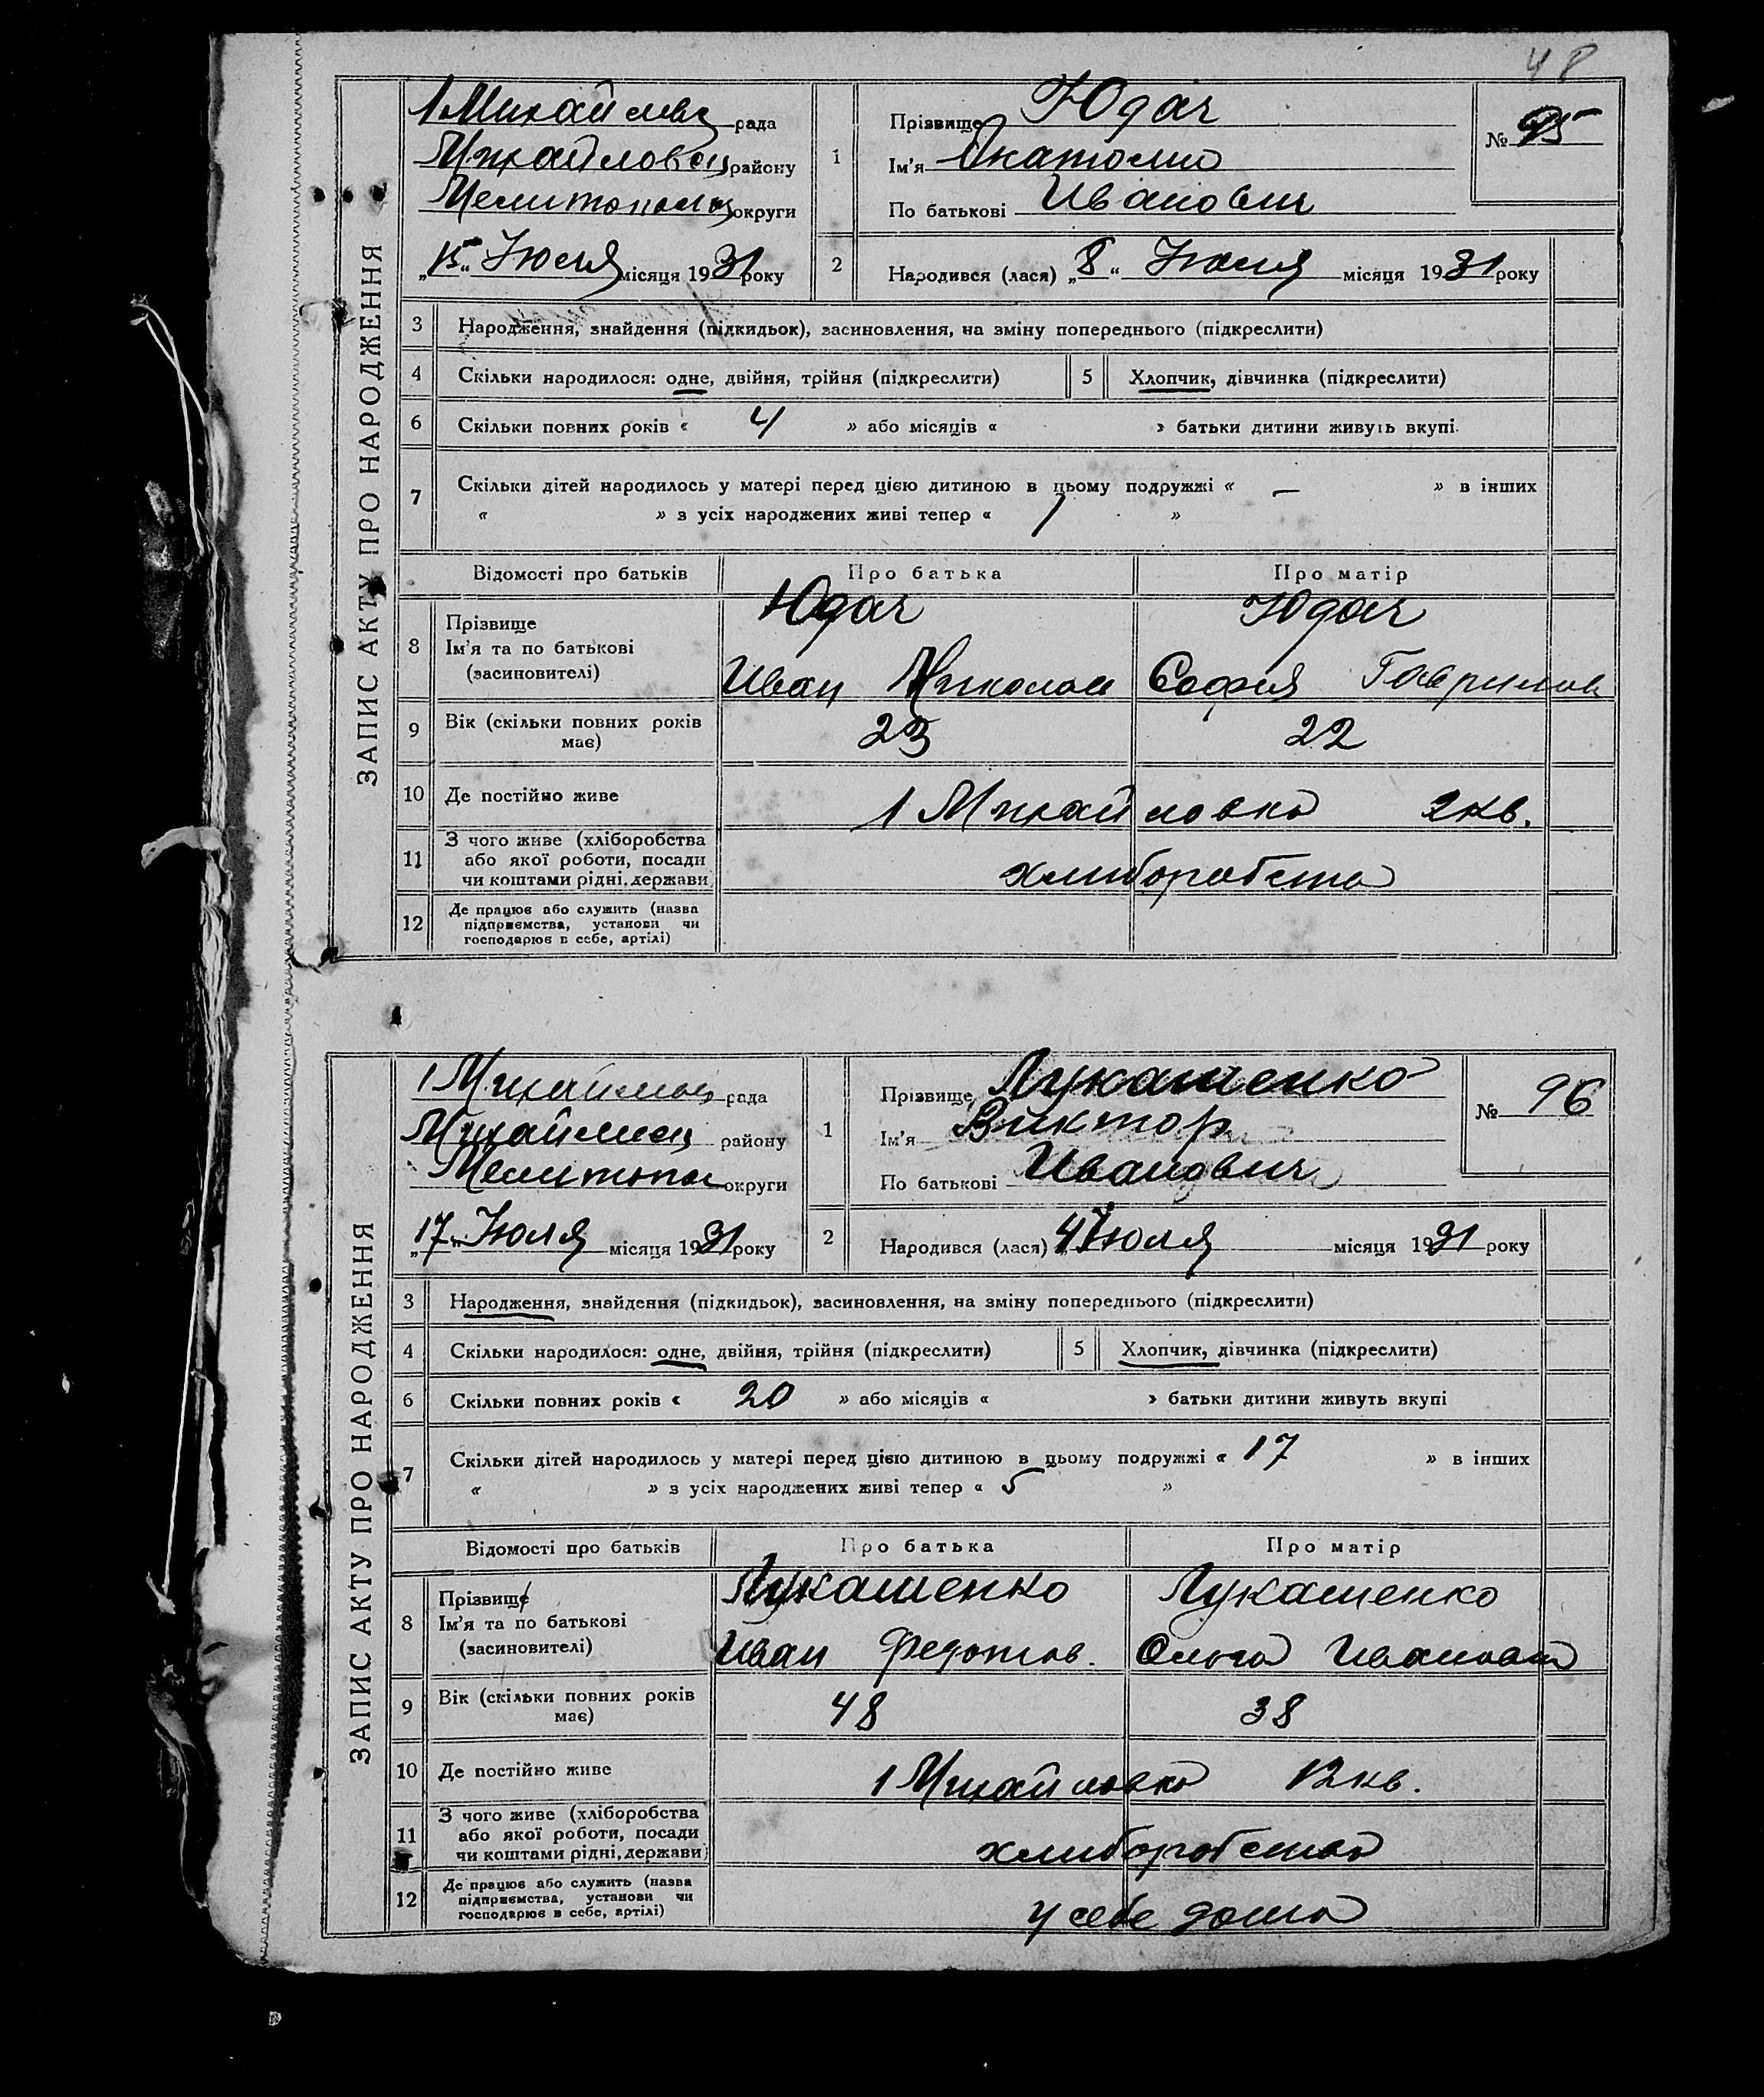 48
ЗАПИС АКТУ ПРО НАРОДЖЕННЯ
1 Михайловс рада
Михайловск району
Мелитополь округи
„15“ Июля місяця 1931 року
1
Прізвище Юдач
Ім'я Анатолий
По батькові Иванович
№ 95
2
Народився (лася) „8“ Июля місяця 1931 року
3 Народження, знайдення (підкидьок), засиновлення, на зміну попереднього (підкреслити)
4 Скільки народилося: одне, двійня, трійня (підкреслити) 5 Хлопчик, дівчинка (підкреслити)
6 Скільки повних років « 4 » або місяців « » батьки дитини живуть вкупі
7 Скільки дітей народилось у матері перед цією дитиною в цьому подружжі « — » в інших
« » з усіх народжених живі тепер « 1 »
Відомості про батьків Про батька Про матір
8 Прізвище Юдач Юдач
Ім'я та по батькові
(засиновителі) Иван Николаи София Гаврилов
9 Вік (скільки повних років має) 23 22
10 Де постійно живе 1 Михайловка 2 кв.
11 З чого живе (хліборобства
або якої роботи, посади
чи коштами рідні, держави) хлиборобства
12 Де працює або служить (назва
підприємства, установи чи
господарює в себе, артілі)
ЗАПИС АКТУ ПРО НАРОДЖЕННЯ
1 Михайлов рада
Михайлов району
Мелитопол округи
„17“ Июля місяця 1931 року
1
Прізвище Лукашенко
Ім'я Виктор
По батькові Иванович
№ 96
2
Народився (лася) 4 Июля місяця 1931 року
3 Народження, знайдення (підкидьок), засиновлення, на зміну попереднього (підкреслити)
4 Скільки народилося: одне, двійня, трійня (підкреслити) 5 Хлопчик, дівчинка (підкреслити)
6 Скільки повних років « 20 » або місяців « » батьки дитини живуть вкупі
7 Скільки дітей народилось у матері перед цією дитиною в цьому подружжі « 17 » в інших
« » з усіх народжених живі тепер « 5 »
Відомості про батьків Про батька Про матір
8 Прізвище Лукашенко Лукашенко
Ім'я та по батькові
(засиновителі) Иван Федотов. Ольга Иванова
9 Вік (скільки повних років має) 48 38
10 Де постійно живе 1 Михайловка 12 кв.
11 З чого живе (хліборобства
або якої роботи, посади
чи коштами рідні, держави) хлиборобства
12 Де працює або служить (назва
підприємства, установи чи
господарює в себе, артілі) у себе дома